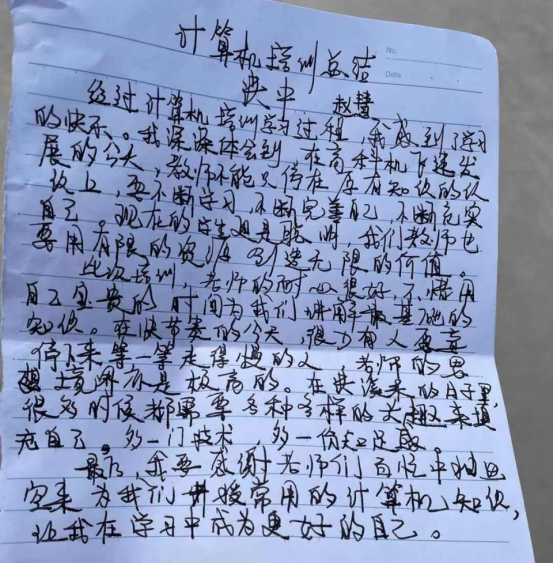 计算机培训总结
No
Date
央中 赵慧
经过计算机培训学习过程,我感到了学习
的快乐。我深深体会到,在高科机飞速发
展的今天,教师不能只停在原有知识的仅
仅上,要不断学习,不断完善自己,不断充实
自己。现在的学生也是聪明,我们教师也
要用有限的资源创造无限的价值。
此次培训,老师的耐心很好,不惜用
自己宝贵的时间为我们讲解最基础的
知识。在快节奏的今天,很少有人愿意
停下来等一等走得慢的人,老师的思
想境界亦是极高的。在要滚来的日子里,
很多的时候都需要各种各样的兴趣来填
充自己。多一门技术,多一份知足感。
最后,我要感谢老师们百忙中抽出
空来为我们讲授常用的计算机知识,
让我在学习中成为更好的自己。